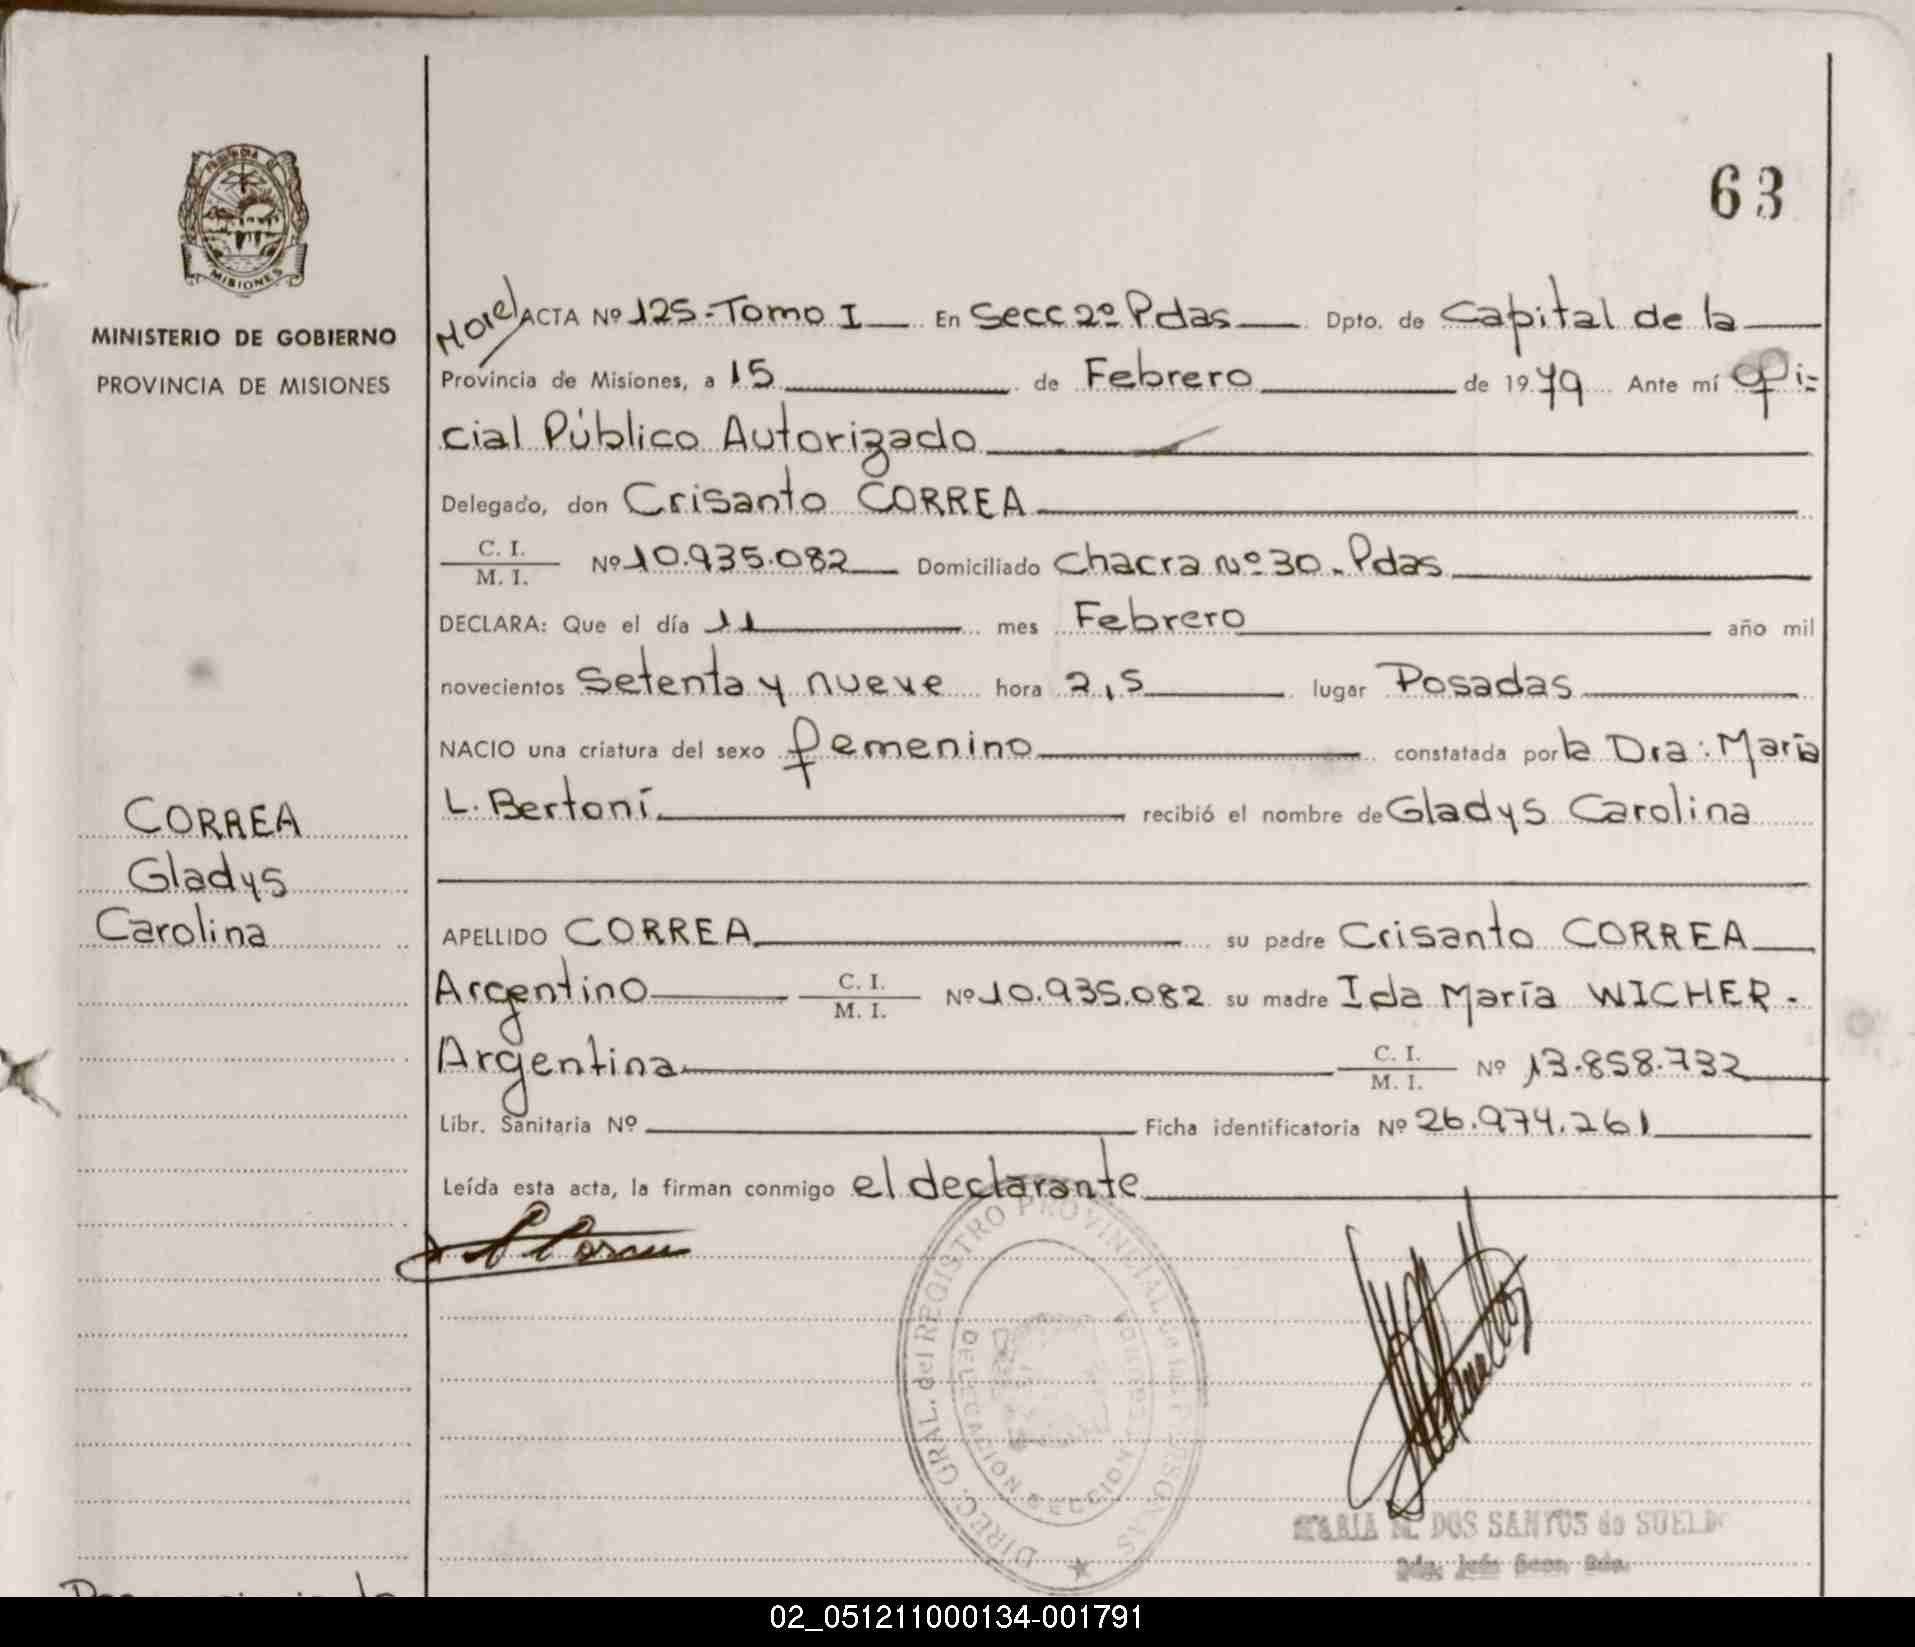 63
PROVINCIA DE
MISIONES
MINISTERIO DE GOBIERNO
PROVINCIA DE MISIONES
Morel ACTA Nº 125.-Tomo I En Secc 2º Pdas Dpto. de Capital de la
Provincia de Misiones, a 15 de Febrero de 1979 Ante mí Ofi=
cial Público Autorizado
Delegado, don Crisanto CORREA
C. I.
M. I. Nº 10.935.082 Domiciliado Chacra nº 30.-Pdas
DECLARA: Que el día 11 mes Febrero año mil
novecientos setenta y nueve hora 2,5 lugar Posadas
NACIO una criatura del sexo femenino constatada por la Dra: María
L. Bertoni recibió el nombre de Gladys Carolina
CORREA
Gladys
Carolina
APELLIDO CORREA su padre Crisanto CORREA
Argentino C. I.
M. I. Nº 10.935.082 su madre Ida María WICHER.
Argentina C. I.
M. I. Nº 13.858.732
Libr. Sanitaria Nº Ficha identificatoria Nº 26.974.261
Leída esta acta, la firman conmigo el declarante
DIREC. GRAL. del REGISTRO PROVINCIAL de las PERSONAS
DELEGACION SECCION
DOS SANTOS de SUELDO
02_051211000134-001791